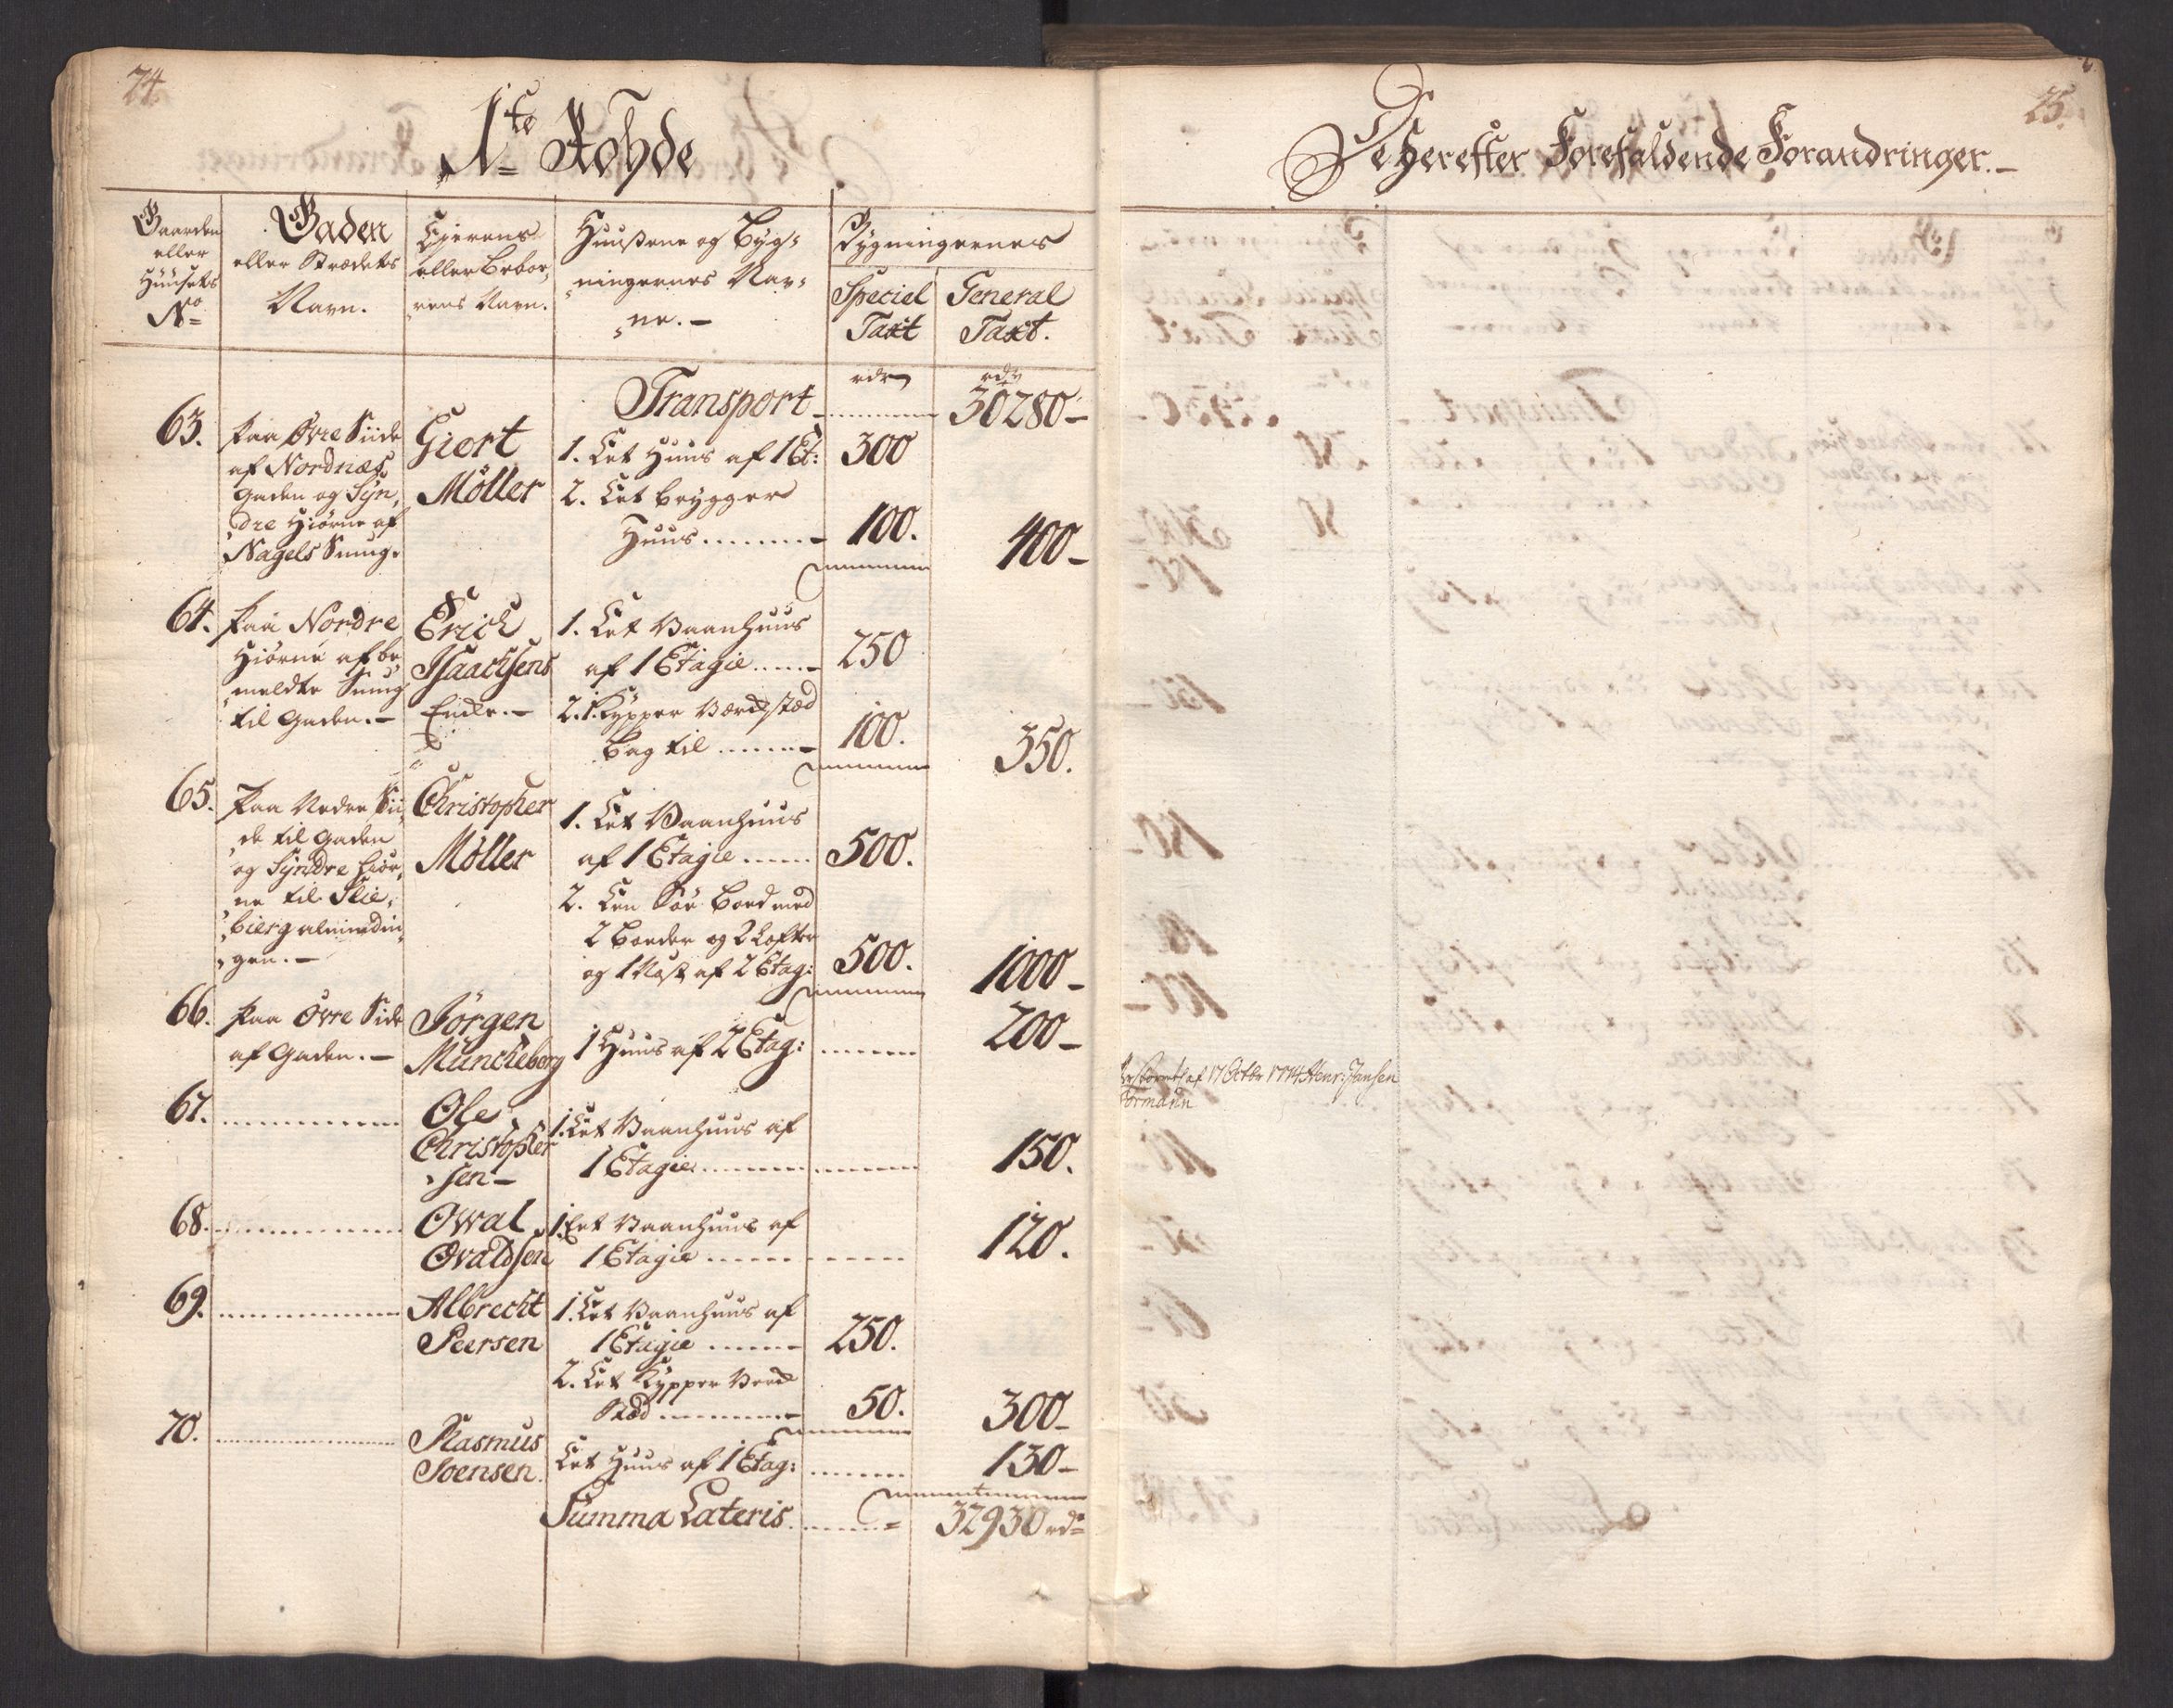 74.
1te Rohde
Gaarden
eller
Huusets
No
Gaden
eller Strædets
Navn.
Ejerens
eller Beboe,
rens Navn.
Huusene og Byg-
ningernes Nav-
ne.
Bygningernes
Speciel
Taxt
General
Taxt.
Transport
rdr
rdr
30280
63.
Paa Øvre Siide
af Nordnæs
Gaden og Syn,
dre Hiørne af
Nagels Smug.
Giert
Möller
1. Eet Huus af 1 Et:
300
2. Eet Brygger
Huus
100.
400
64.
Paa Nordre
Hiørne af be,
meldte Smug
til Gaden.
Erich
Isaachsens
Encke.
1. Eet Vaanhuus
af 1 Etagie
250
2. 1 Kypper Værcksted
bag til
100.
350.
65.
Paa Nedre Sii,
de til Gaden
og Syndre Hiør,
ne til Slie,
bierg almindin,
gen.
Christopher
Möller
1. Eet Vaanhuus
af 1 Etagie
500.
2. Een Söe Boed med
2 Boeder og 2 Lofter
og 1 af 2 Etag:
500.
1000
66.
Paa Øvre Side
af Gaden.
Jörgen
Münckeberg
1 Huus af 2 Etag:
200
67.
Ole
Christopher
sen
1. Eet Vaanhuus af
1 Etagie
150.
68.
Owal
Ovaldsen
1. Eet Vaanhuus af
1 Etagie
120.
69.
Albrecht
Peersen
1. Eet Vaanhuus af
1 Etagie
250.
2. Eet Kypper Værck
Sted
50.
300
70.
Rasmus
Soensen.
Eet Huus af 1 Etag:
130
Summa Lateris
32930 rdr
25.
De herefter Forefaldende Forandringer.
af 17 Octbr 1774 Henr: Jansen
Formann